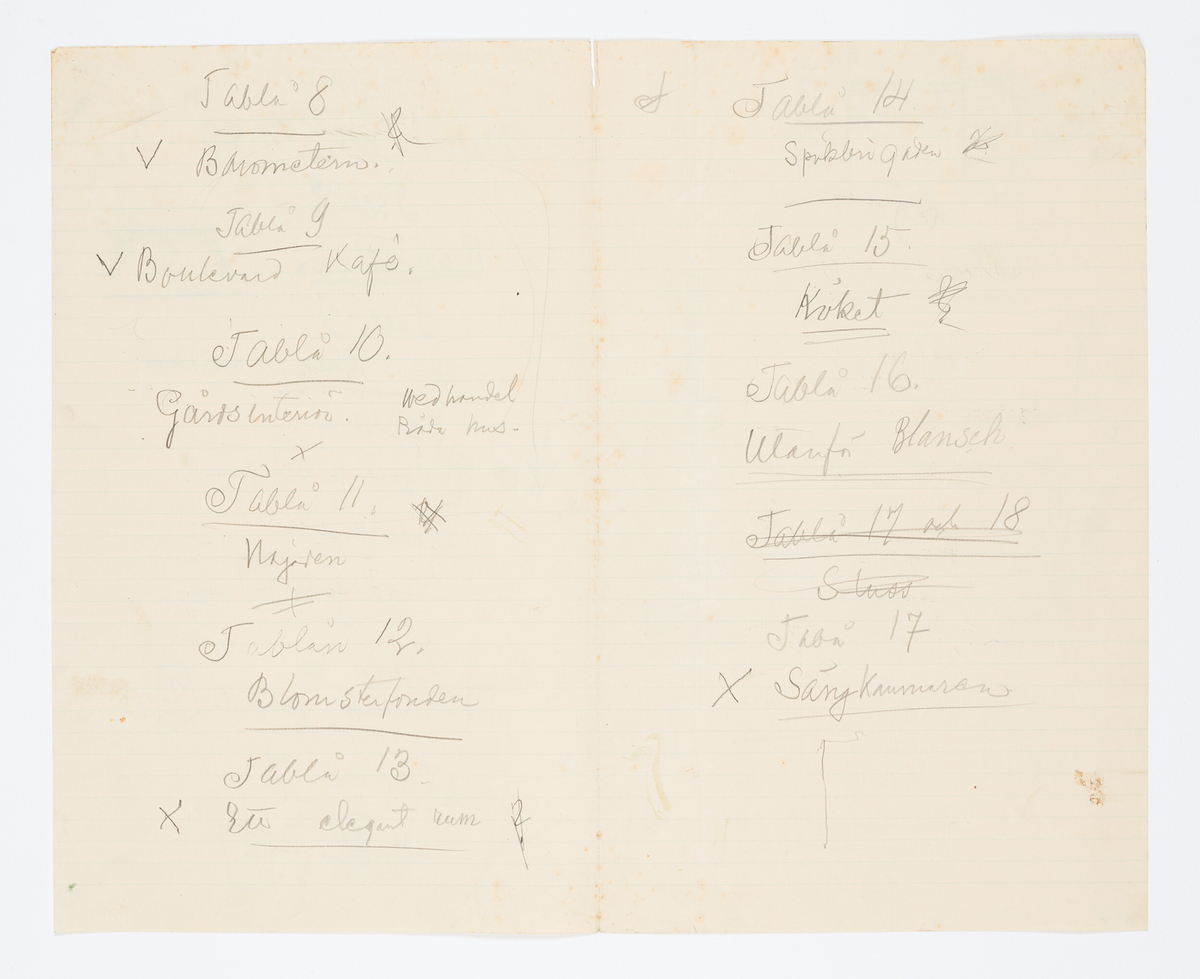 Tablå 8
Barometern.
Tablå 9
Boulevard Kafé.
Tablå 10.
Gårdsinteriör. Wedhandel
Röda hus.
Tablå 11.
Tablån 12.
Blomsterfonden
Tablå 13.
Ett elegant rum
Tablå 14
Spökbrigaden
Tablå 15.
Köket
Tablå 16.
Utanför Blansch
Tablå 17 och 18
Tabå 17
Sängkammaren